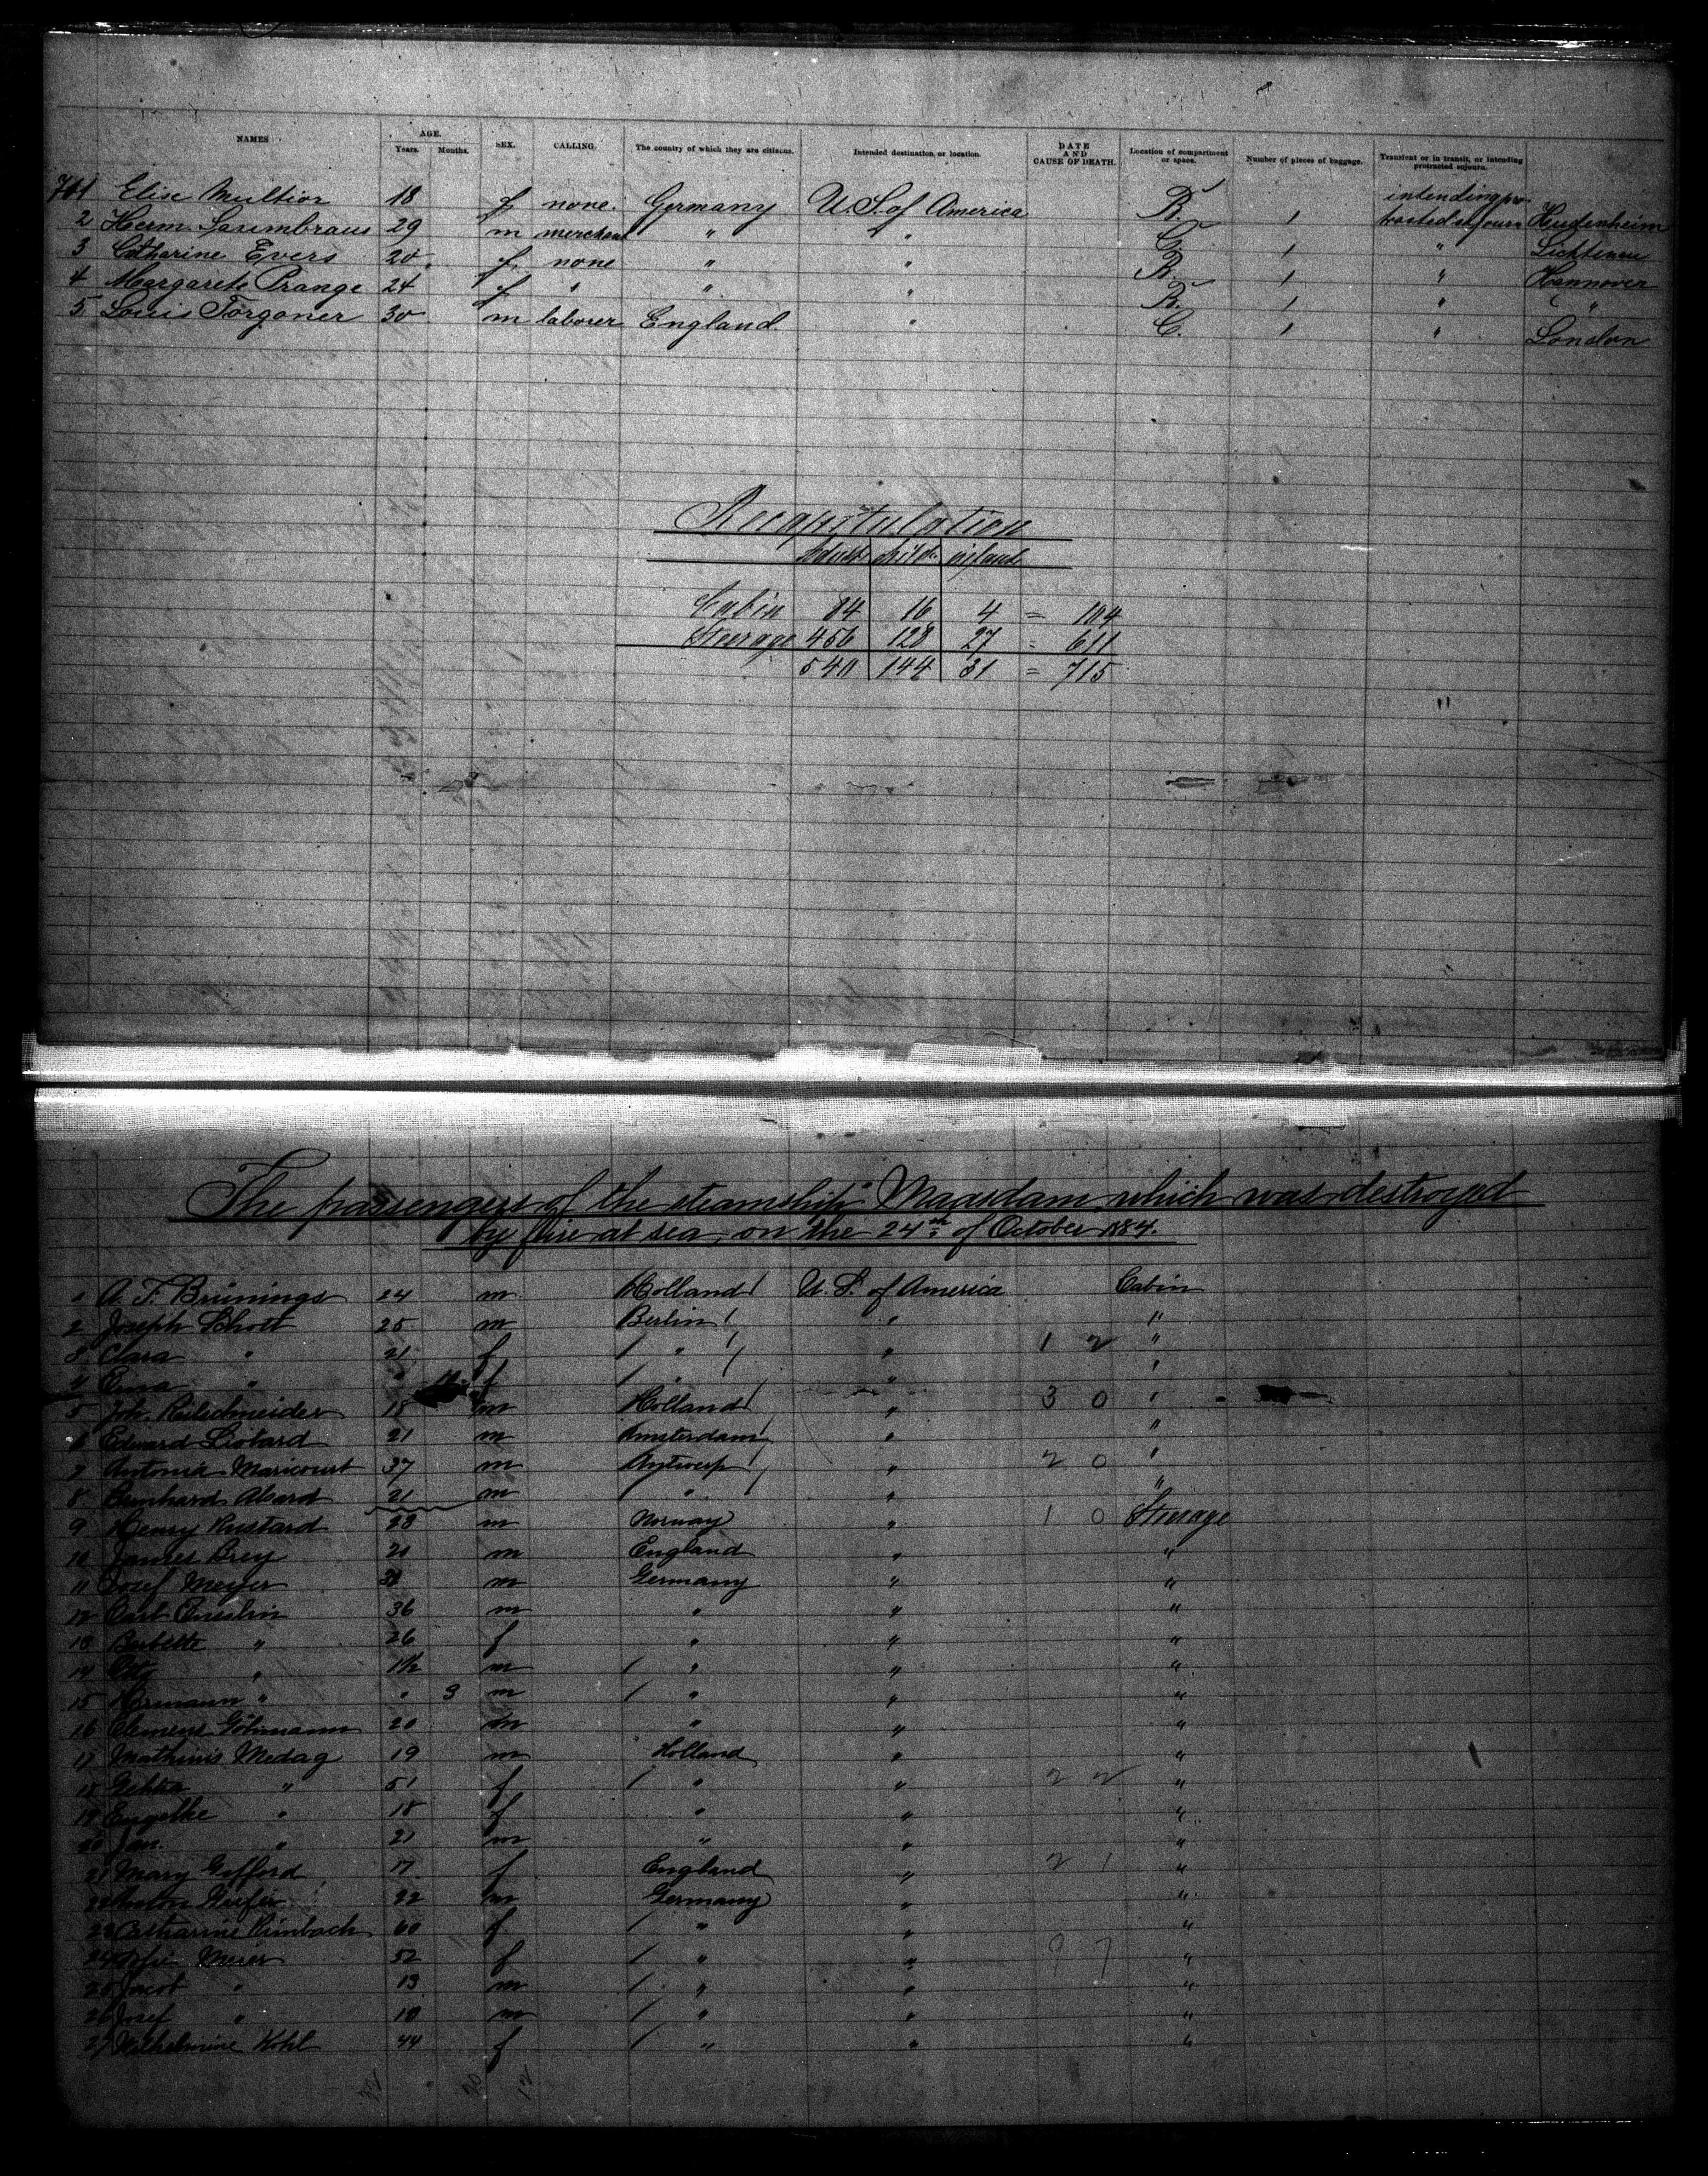 NAMES AGE. Years. Months. SEX. CALLING. The country of which they are citizens. Intended destination or location. DATE AND CAUSE OF DEATH. Location of compartment or space. Number of pieces of baggage. Transient or in transit, or intending protracted sojourn.
711 Elise Multior 18 f none. Germany U. S. of America R. 1 intending protracted sojourn Heidenheim
2 Herm. Saumbraus 29 m merchant " " C. 1 " Lichtenau
3 Catharine Evers 20 f. none " " R. 1 " Hannover
4 Margarete Prange 24 f " " " R. 1 " "
5 Louis Torgoner 30 m laborer England " C. 1 " London
Recapitulation
Adults child. infants
Cabin 84 16 4 = 104
Steerage 456 128 27 = 611
540 144 31 = 715
"
The passengers of the steamship "Maasdam" which was destroyed
by fire at sea, on the 24th of October 1884.
1 A. F. Brünings 24 m Holland U. S. of America Cabin
2 Joseph Schott 25 m Berlin " "
3 Clara " 21 f " " 1 2 "
4 Erna " f " " "
5 Joh. Reilschneider 18 m Holland " 3 0 "
6 Edward Liotard 21 m Amsterdam " "
7 Antonia Maricourt 37 m Antwerp " 2 0 "
8 Bernhard Abard 21 m " " "
9 Henry Rustard 28 m Norway " 1 0 Steerage
10 James Brey 20 m England " "
11 Josef Meyer m Germany " "
12 Carl 36 m " " "
13 Babette " 26 f " " "
14 Otto " 1½ m " " "
15 Hermann " " 3 m " " "
16 Clemens Göhmann 20 m " " "
17 Mathinis Medag 19 m Holland " "
18 Gebka " 51 f " " 2 2 "
19 Engelke " 18 f " " "
20 Jan. " 21 m " " "
21 Mary Gifford 17 f England " 2 1 "
22 Anton 22 m Germany " "
23 Catharine Rimbach 60 f " " "
24 Meser 52 f " " 9 7 "
25 Jacob " 13 m " " "
26 Josef " 10 m " " "
27 Wilhelmine Kohl 44 f " " "